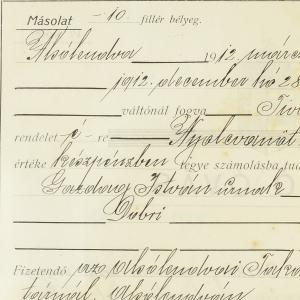 Másolat -10 fillér bélyeg.
Alsólendva 1912 márcz
1912. december hó 28
váltónál fogva
rendelet é- re
értéke készpénzben tegye számolásba tud
Gazdag István úrnak
Dobri
Fizetendő az alsólendvai Taka
tárnál, Alsólendván